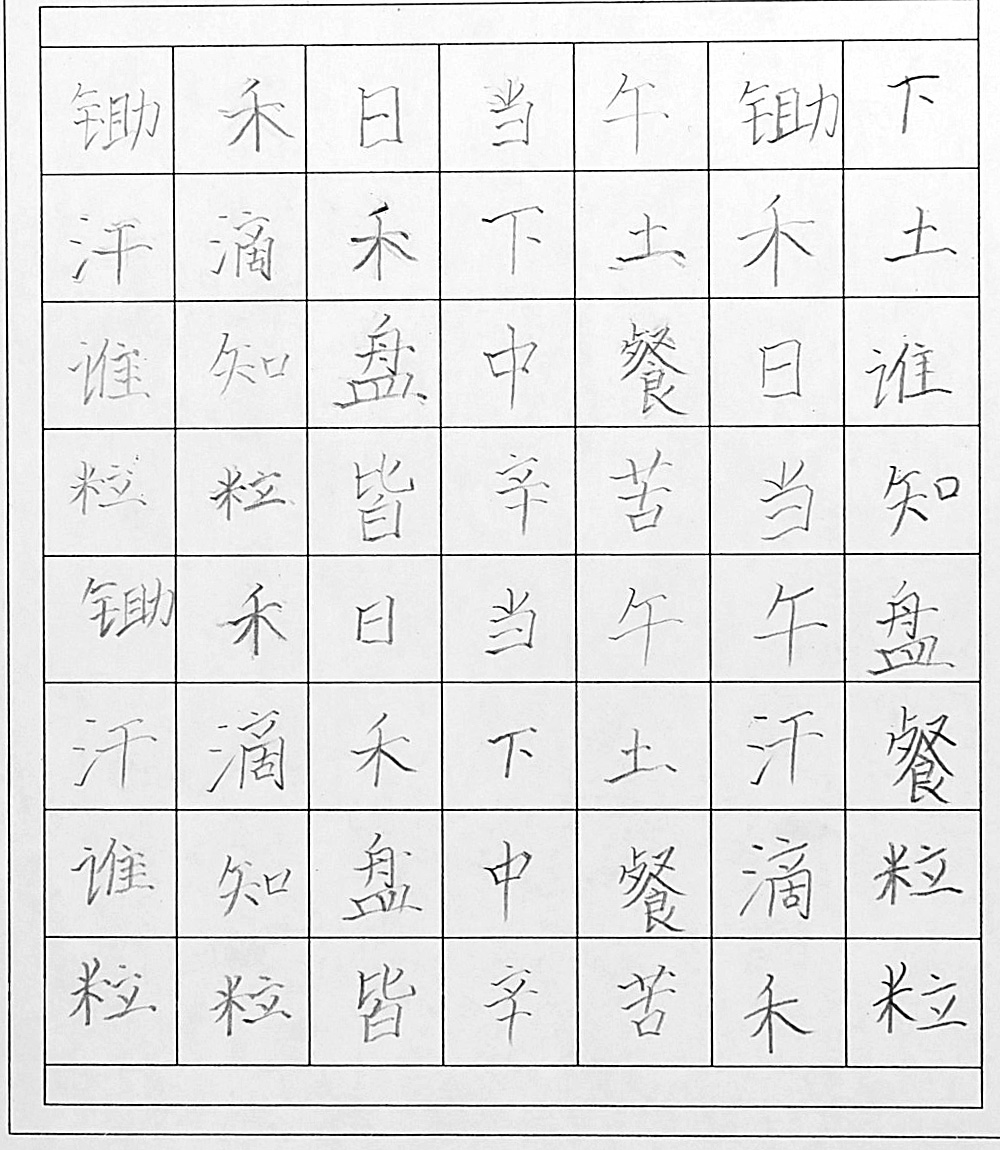 锄禾日当午锄下
汗滴禾下土禾土
谁知盘中餐日谁
粒粒皆辛苦当知
锄禾日当午午盘
汗滴禾下土汗餐
谁知盘中餐滴粒
粒粒皆辛苦禾粒